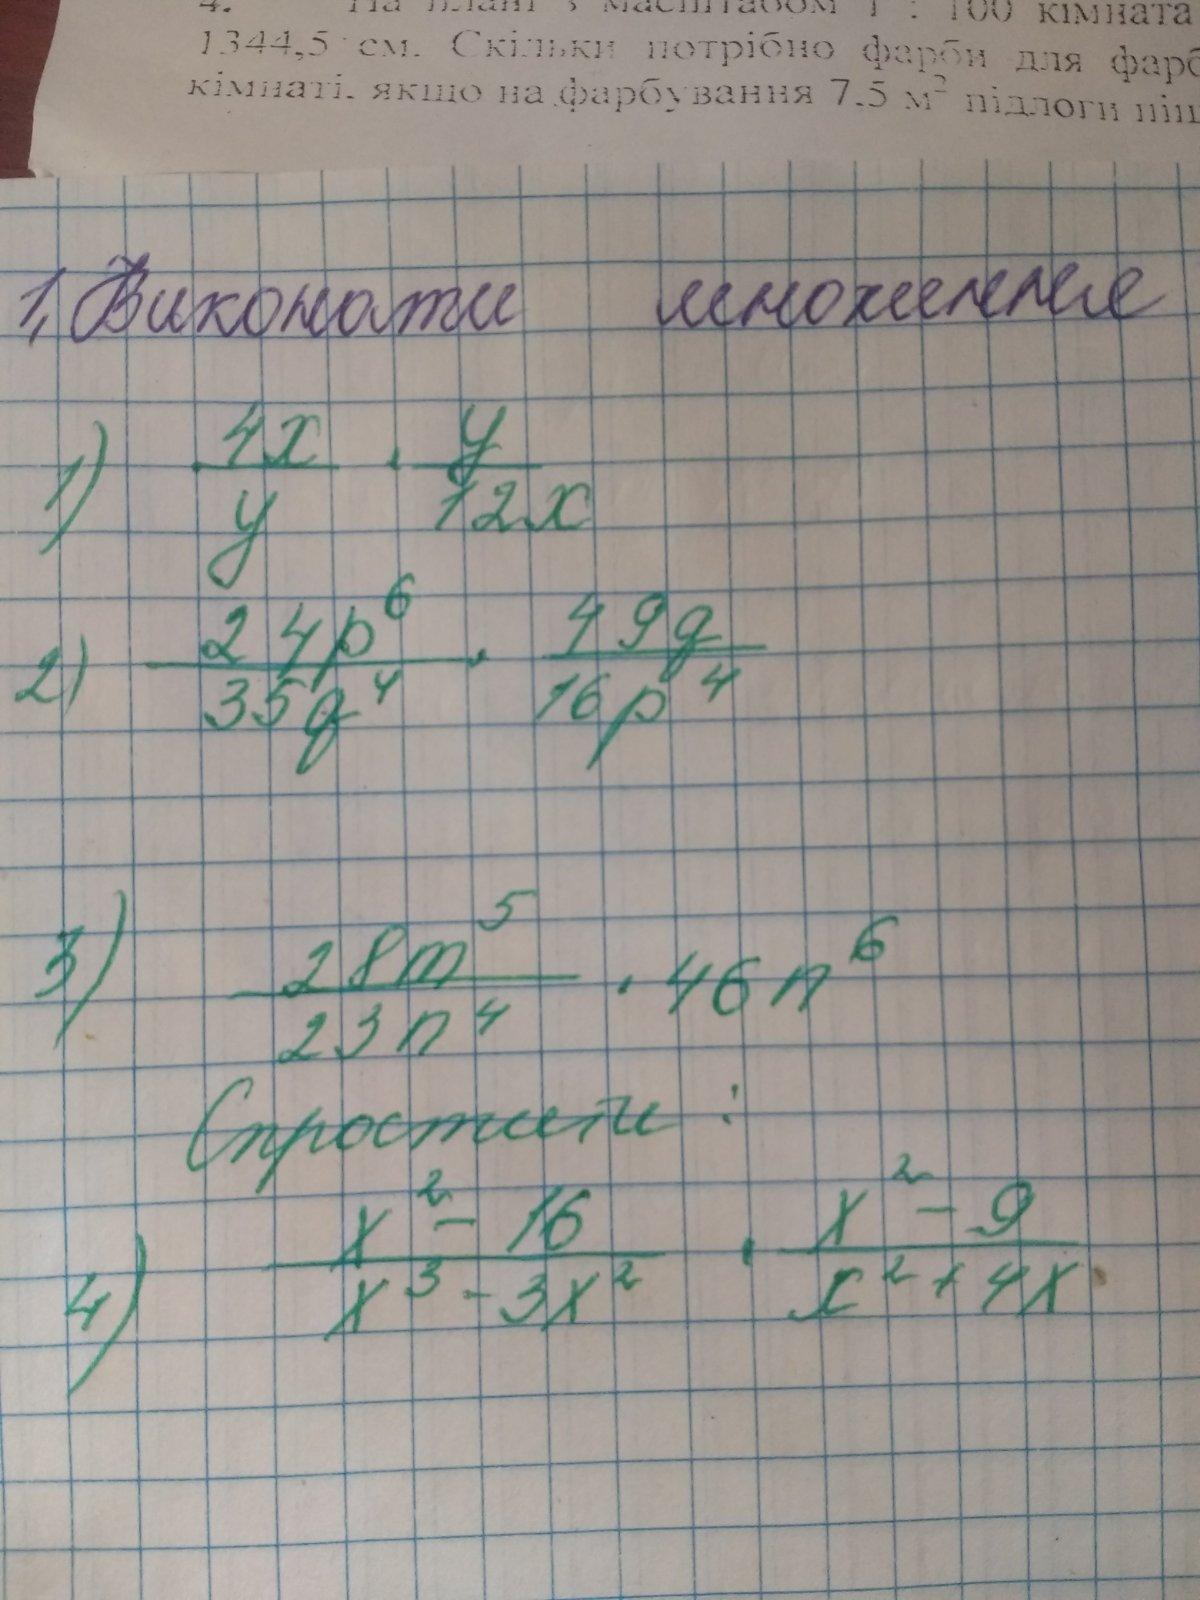 4. На плані з масштабом 1 : 100 кімната
1344,5 см. Скільки потрібно фарби для фарб
кімнаті, якщо на фарбування 7,5 м² підлоги піш
1, Виконати множення
1) 4x/y · y/12x
2) 24p⁶/35q⁴ · 49q/16p⁴
3) 28m⁵/23n⁴ · 46n⁶
Спростити :
4) x² - 16/x³ - 3x² · x² - 9/x² + 4x